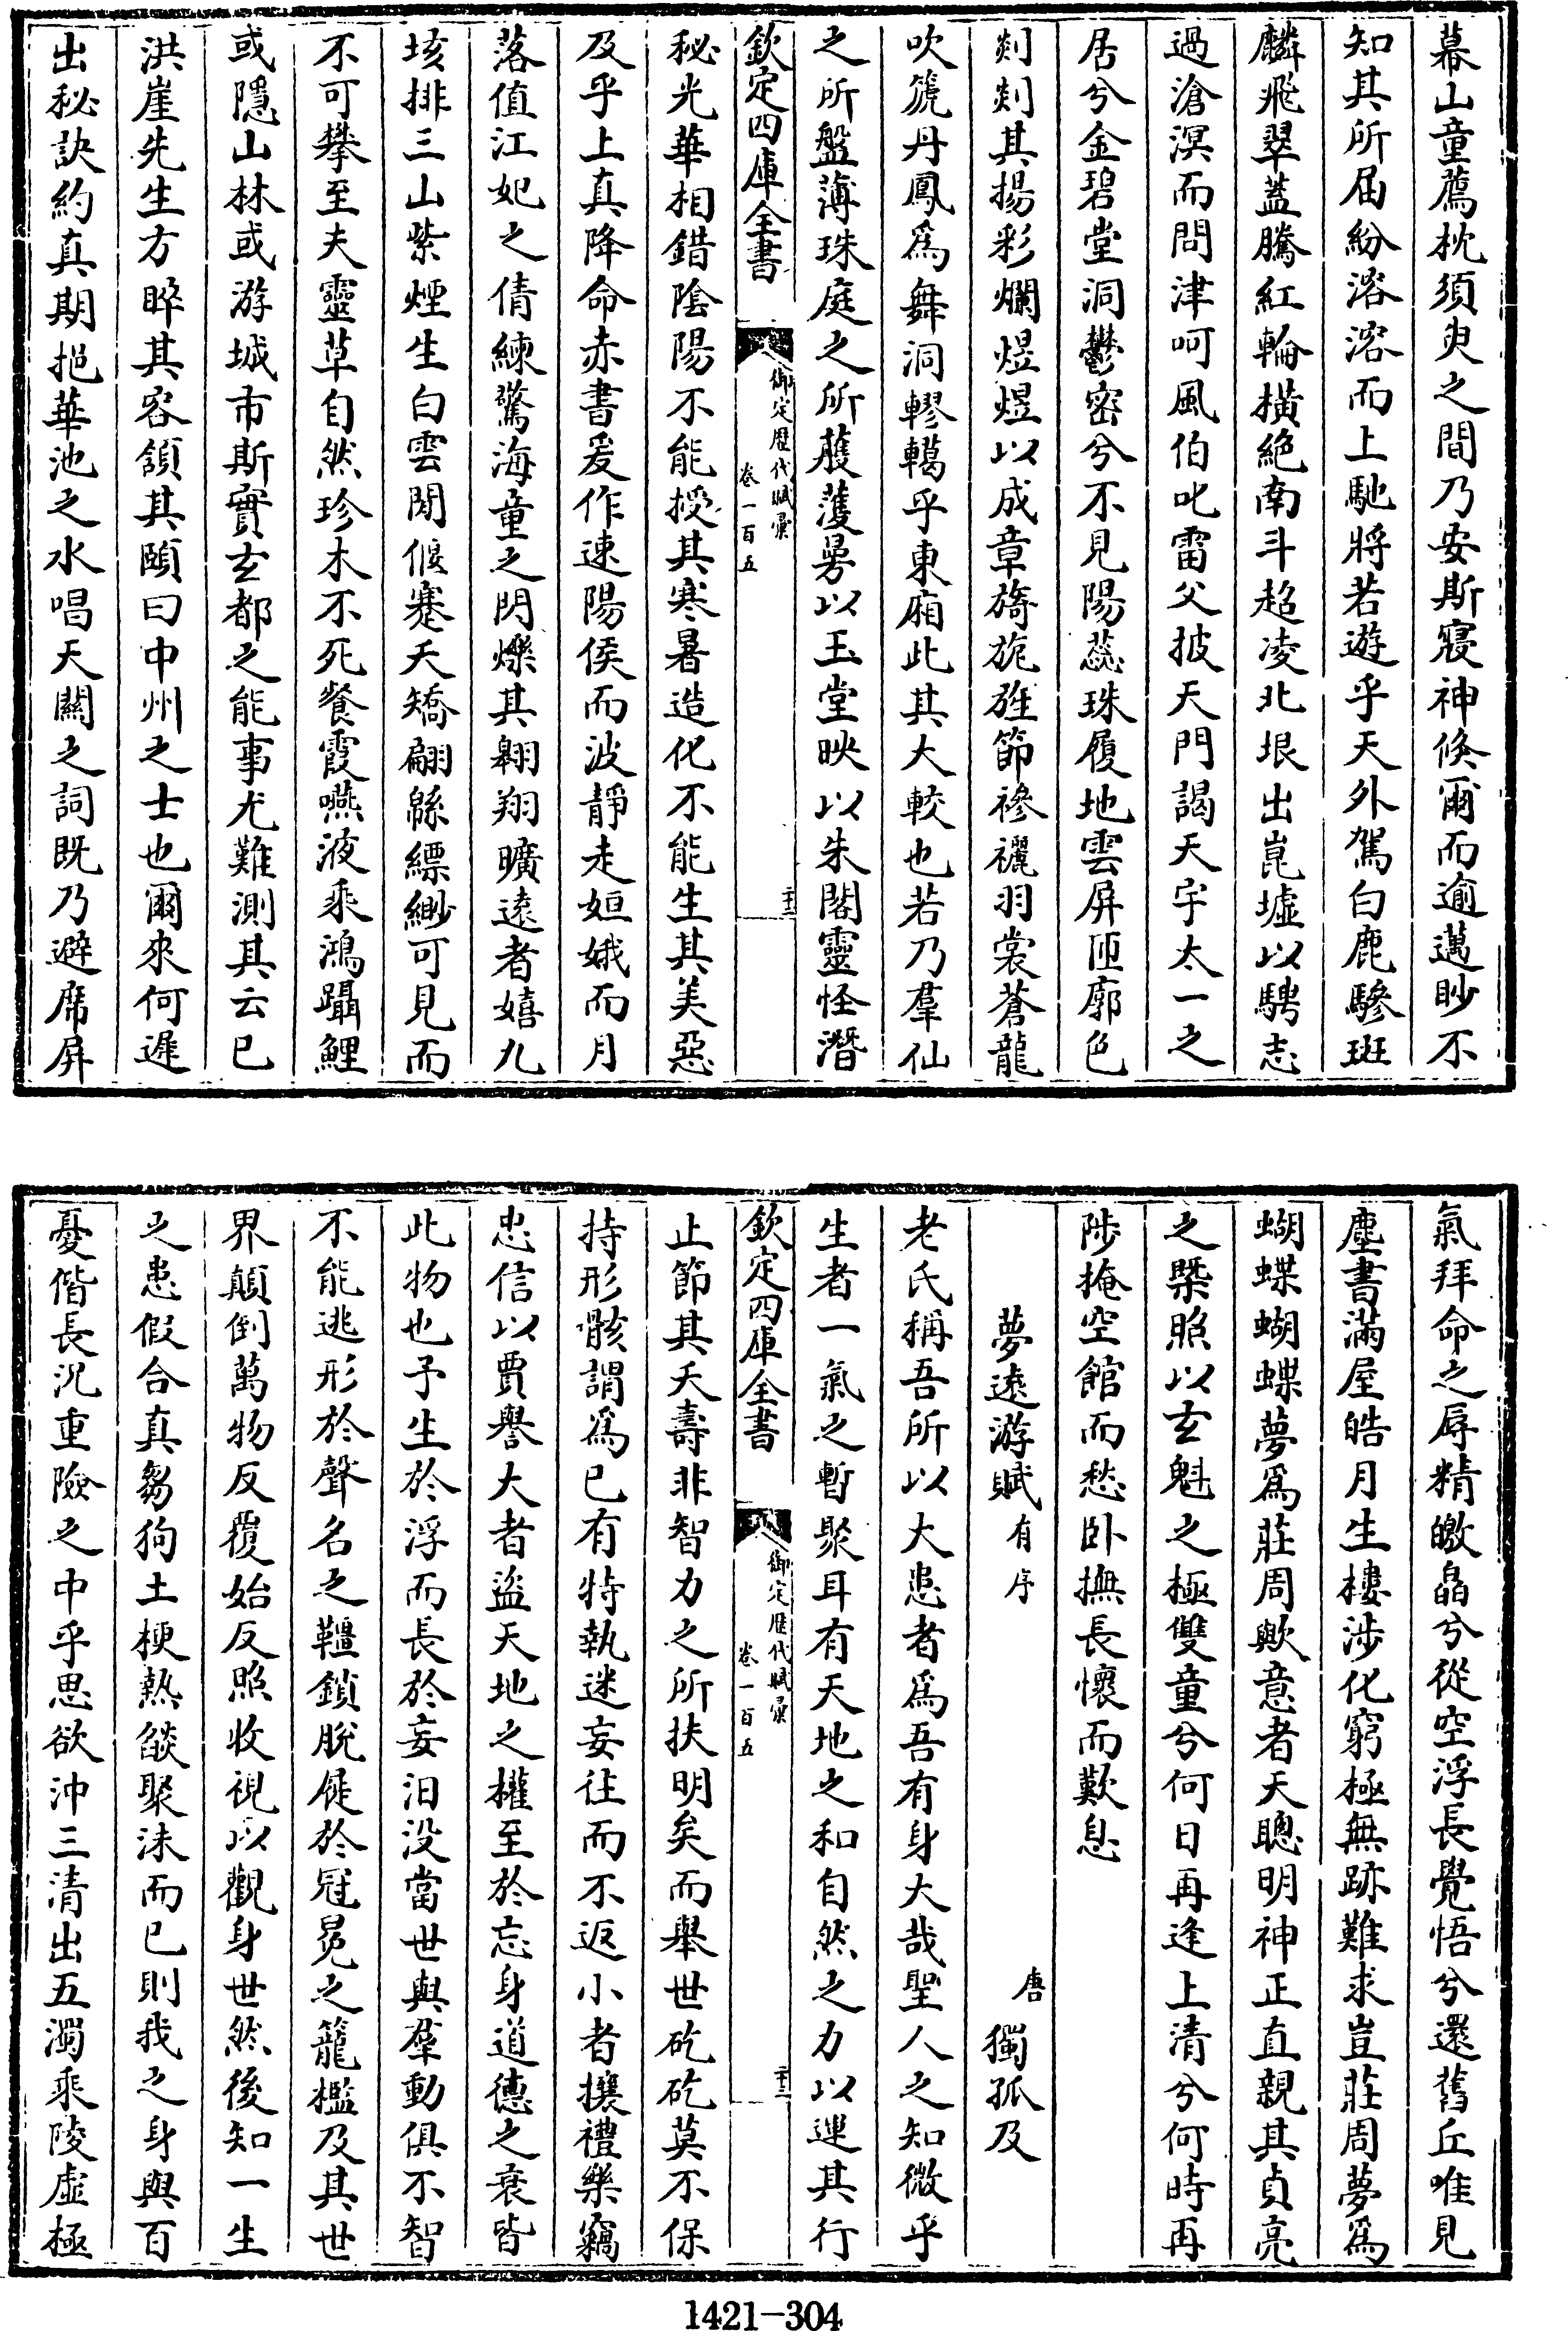 幕山童薦枕須臾之間乃安斯寢神倏爾而逾邁眇不
知其所屆紛溶溶而上馳將若遊乎天外駕白鹿驂斑
麟飛翠蓋騰紅輪橫絶南斗超凌北垠出崑墟以騁志
過滄溟而問津呵風伯叱雷父披天門謁天宇太一之
居兮金碧堂洞鬱密兮不見陽蕊珠履地雲屏匝廓色
剡剡其揚彩爛煜煜以成章旖旎旌節襂襹羽裳蒼龍
吹箎丹鳳為舞洞轇轕乎東廂此其大較也若乃羣仙
之所盤薄珠庭之所蔰蒦昜以玉堂映以朱閣靈怪潛
欽定四庫全書
御定歷代賦彙
卷一百五
二十三
秘光華相錯陰陽不能授其寒暑造化不能生其美惡
及乎上真降命赤書爰作速陽侯而波靜走姮娥而月
落值江妃之倩練驚海童之閃爍其翱翔曠遠者嬉九
垓排三山紫煙生白雲閒偃蹇夭矯翩緜縹緲可見而
不可攀至夫靈草自然珍木不死餐霞嚥液乘鴻躡鯉
或隱山林或游城市斯實玄都之能事尤難測其云已
洪崖先生方睟其容頷其頤曰中州之士也爾來何遲
出秘訣約真期挹華池之水唱天關之詞既乃避席屏
氣拜命之辱精皦皛兮從空浮長覺悟兮還舊丘唯見
塵書滿屋皓月生樓涉化窮極無跡難求豈莊周夢為
蝴蝶蝴蝶夢為莊周歟意者天聰明神正直親其貞亮
之槩照以玄魁之極雙童兮何日再逢上清兮何時再
陟掩空館而愁卧撫長懷而歎息
夢遠游賦 有序 唐 獨孤及
老氏稱吾所以大患者為吾有身大哉聖人之知微乎
生者一氣之暫聚耳有天地之和自然之力以運其行
欽定四庫全書
御定歷代賦彙
卷一百五
二十三
止節其夭壽非智力之所扶明矣而舉世矻矻莫不保
持形骸謂為已有特執迷妄往而不返小者攘禮樂竊
忠信以賈譽大者盜天地之權至於忘身道德之衰皆
此物也予生於浮而長於妄汨没當世與羣動俱不智
不能逃形於聲名之韁鎖脫屣於冠冕之籠檻及其世
界顛倒萬物反覆始反照收視以觀身世然後知一生
之患假合真芻狗土梗熱燄聚沫而已則我之身與百
憂偕長沉重險之中乎思欲沖三清出五濁乘陵虛極
1421-304